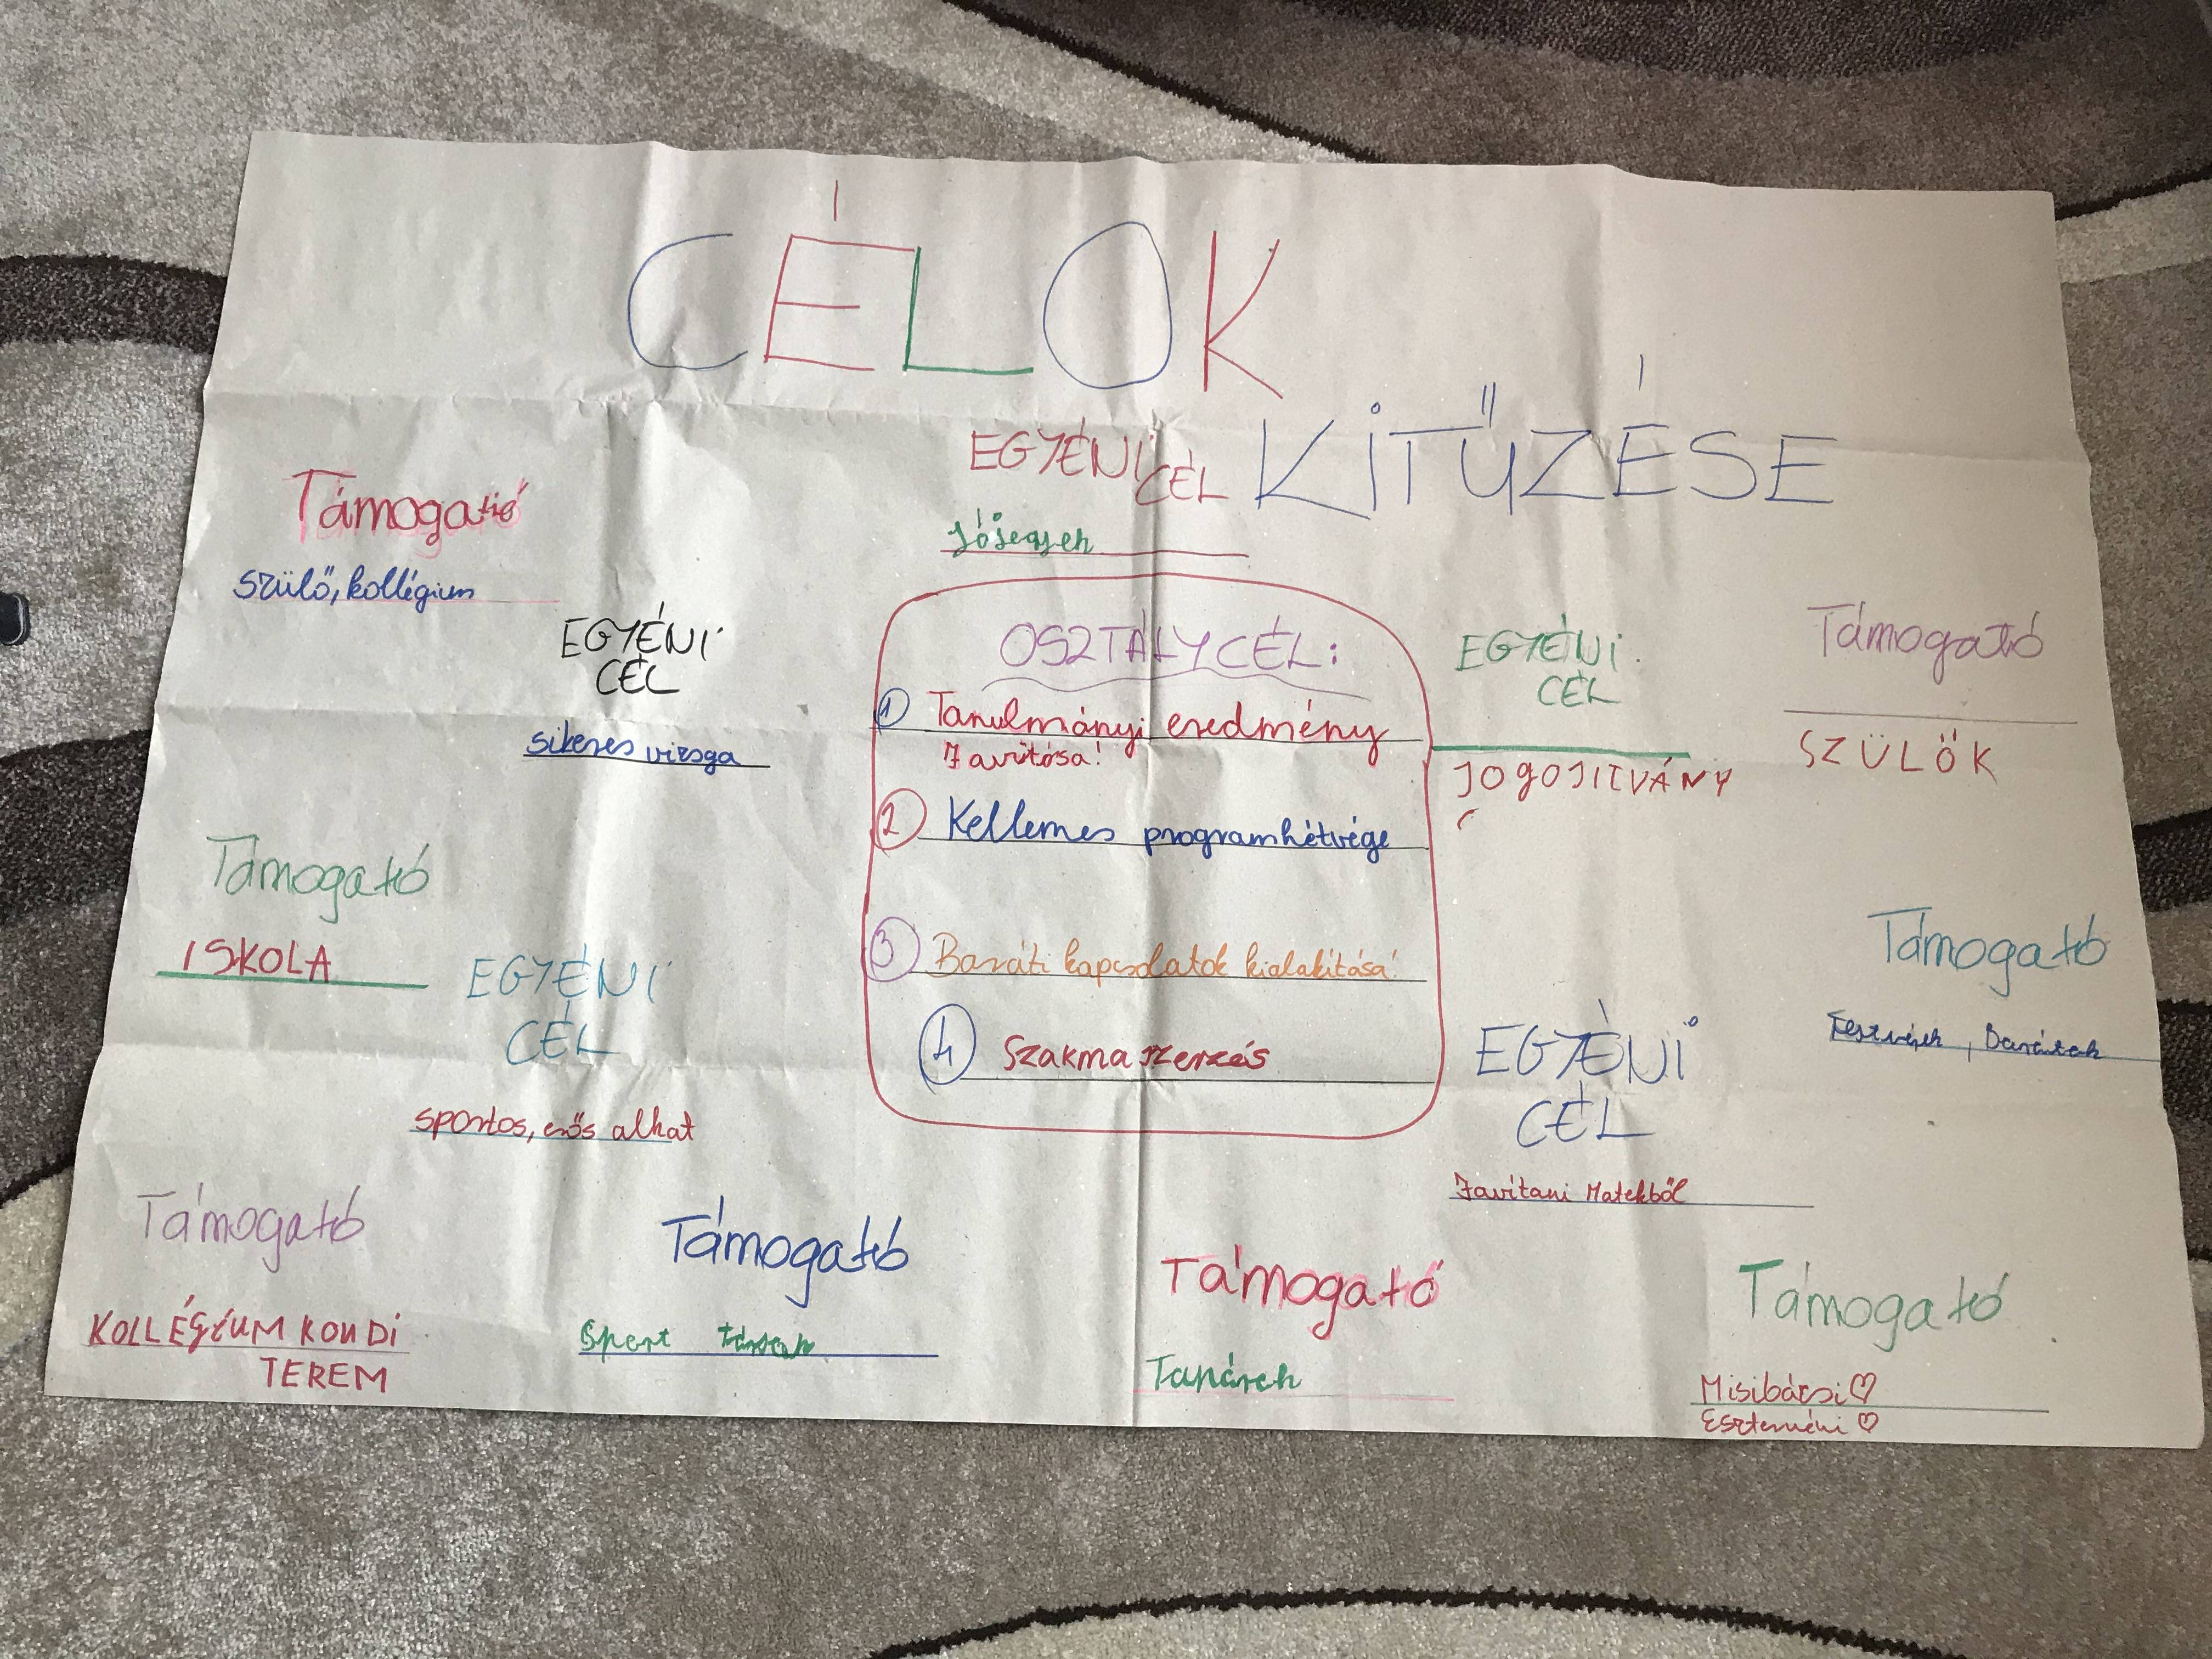 CÉLOK
KITŰZÉSE
EGYÉNI CÉL
Jójegyek
Támogató
Szülő, kollégium
EGYÉNI
CÉL
sikeres vizsga
OSZTÁLYCÉL:
1 Tanulmányi eredmény
Javítása!
2 Kellemes programhétvége
3 Baráti kapcsolatok kialakítása!
4 Szakma szerzés
EGYÉNI
CÉL
JOGOJITVÁNY
Támogató
SZÜLŐK
Támogató
ISKOLA
EGYÉNI
CÉL
sportos, erős alkat
Támogató
Testvérek, Barátok
EGYÉNI
CÉL
Javítani Matekból
Támogató
KOLLÉGIUM KONDI
TEREM
Támogató
Sport társak
Támogató
Tanárok
Támogató
Misibácsi♡
Eszternéni♡